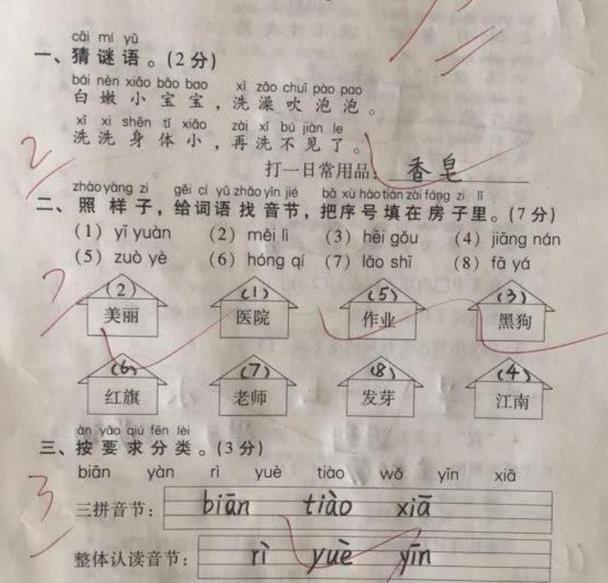 cāi mí yǔ
一、猜谜语。(2分)
bái nèn xiǎo bǎo bao xǐ zǎo chuī pào pao
白嫩小宝宝,洗澡吹泡泡。
xǐ xi shēn tǐ xiǎo zài xǐ bú jiàn le
洗洗身体小,再洗不见了。
打一日常用品: 香皂
2
zhào yàng zi gěi cí yǔ zhǎo yīn jié bǎ xù hào tián zài fáng zi lǐ
二、照样子,给词语找音节,把序号填在房子里。(7分)
(1) yī yuàn (2) měi lì (3) hēi gǒu (4) jiāng nán
(5) zuò yè (6) hóng qí (7) lǎo shī (8) fā yá
7
(2) (1) (5) (3)
美丽 医院 作业 黑狗
(6) (7) (8) (4)
红旗 老师 发芽 江南
àn yāo qiú fēn lèi
三、按要求分类。(3分)
biān yàn rì yuè tiào wǒ yīn xiā
3
三拼音节: biān tiào xiā
整体认读音节: rì yuè yīn